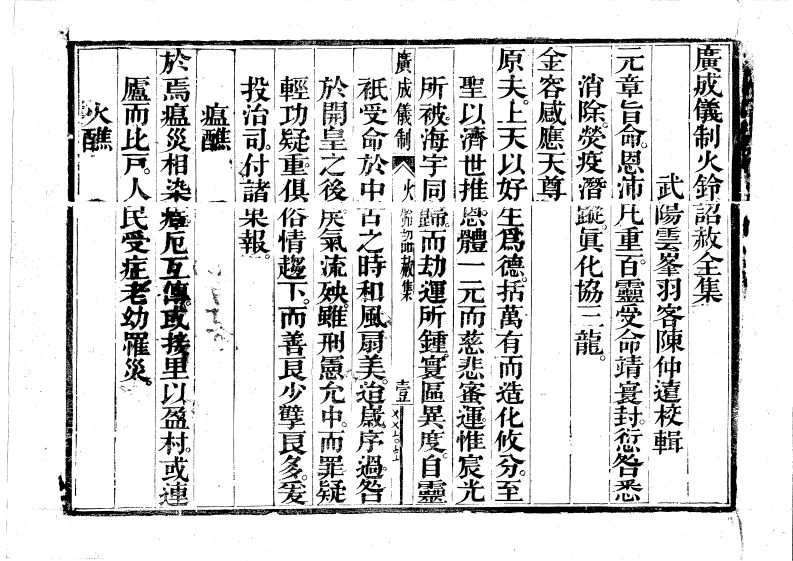 廣成儀制火鈴詔赦全集
武陽雲峯羽客陳仲遠校輯
元章旨命。恩沛凡重。百靈受命靖寰封。愆咎悉
消除。熒疫潛蹤。眞化協三龍。
金容感應天尊
原夫。上天以好生爲德。括萬有而造化攸分。至
聖以濟世推恩。體一元而慈悲蜜運。惟宸光
所被。海宇同歸。而劫運所鍾。寰區異度。自靈
廣成儀制 火鈴詔赦集 壹
祇受命於中古之時。和風扇美。迨歲序過。咎
於開皇之後。戾氣流殃。雖刑憲允中。而罪疑
輕功疑重。俱俗情趨下。而善良少孽艮多。爰
投治司。付諸果報。
瘟醮
於焉瘟災相染。瘴厄互傳。或接里以盈村。或連
廬而比戸。人民受症。老幼罹災。
火醮